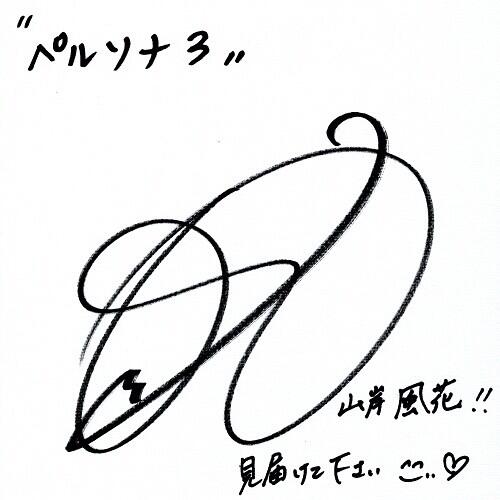 "ペルソナ3"
山岸風花!!
見届けて下さい ^^..♡